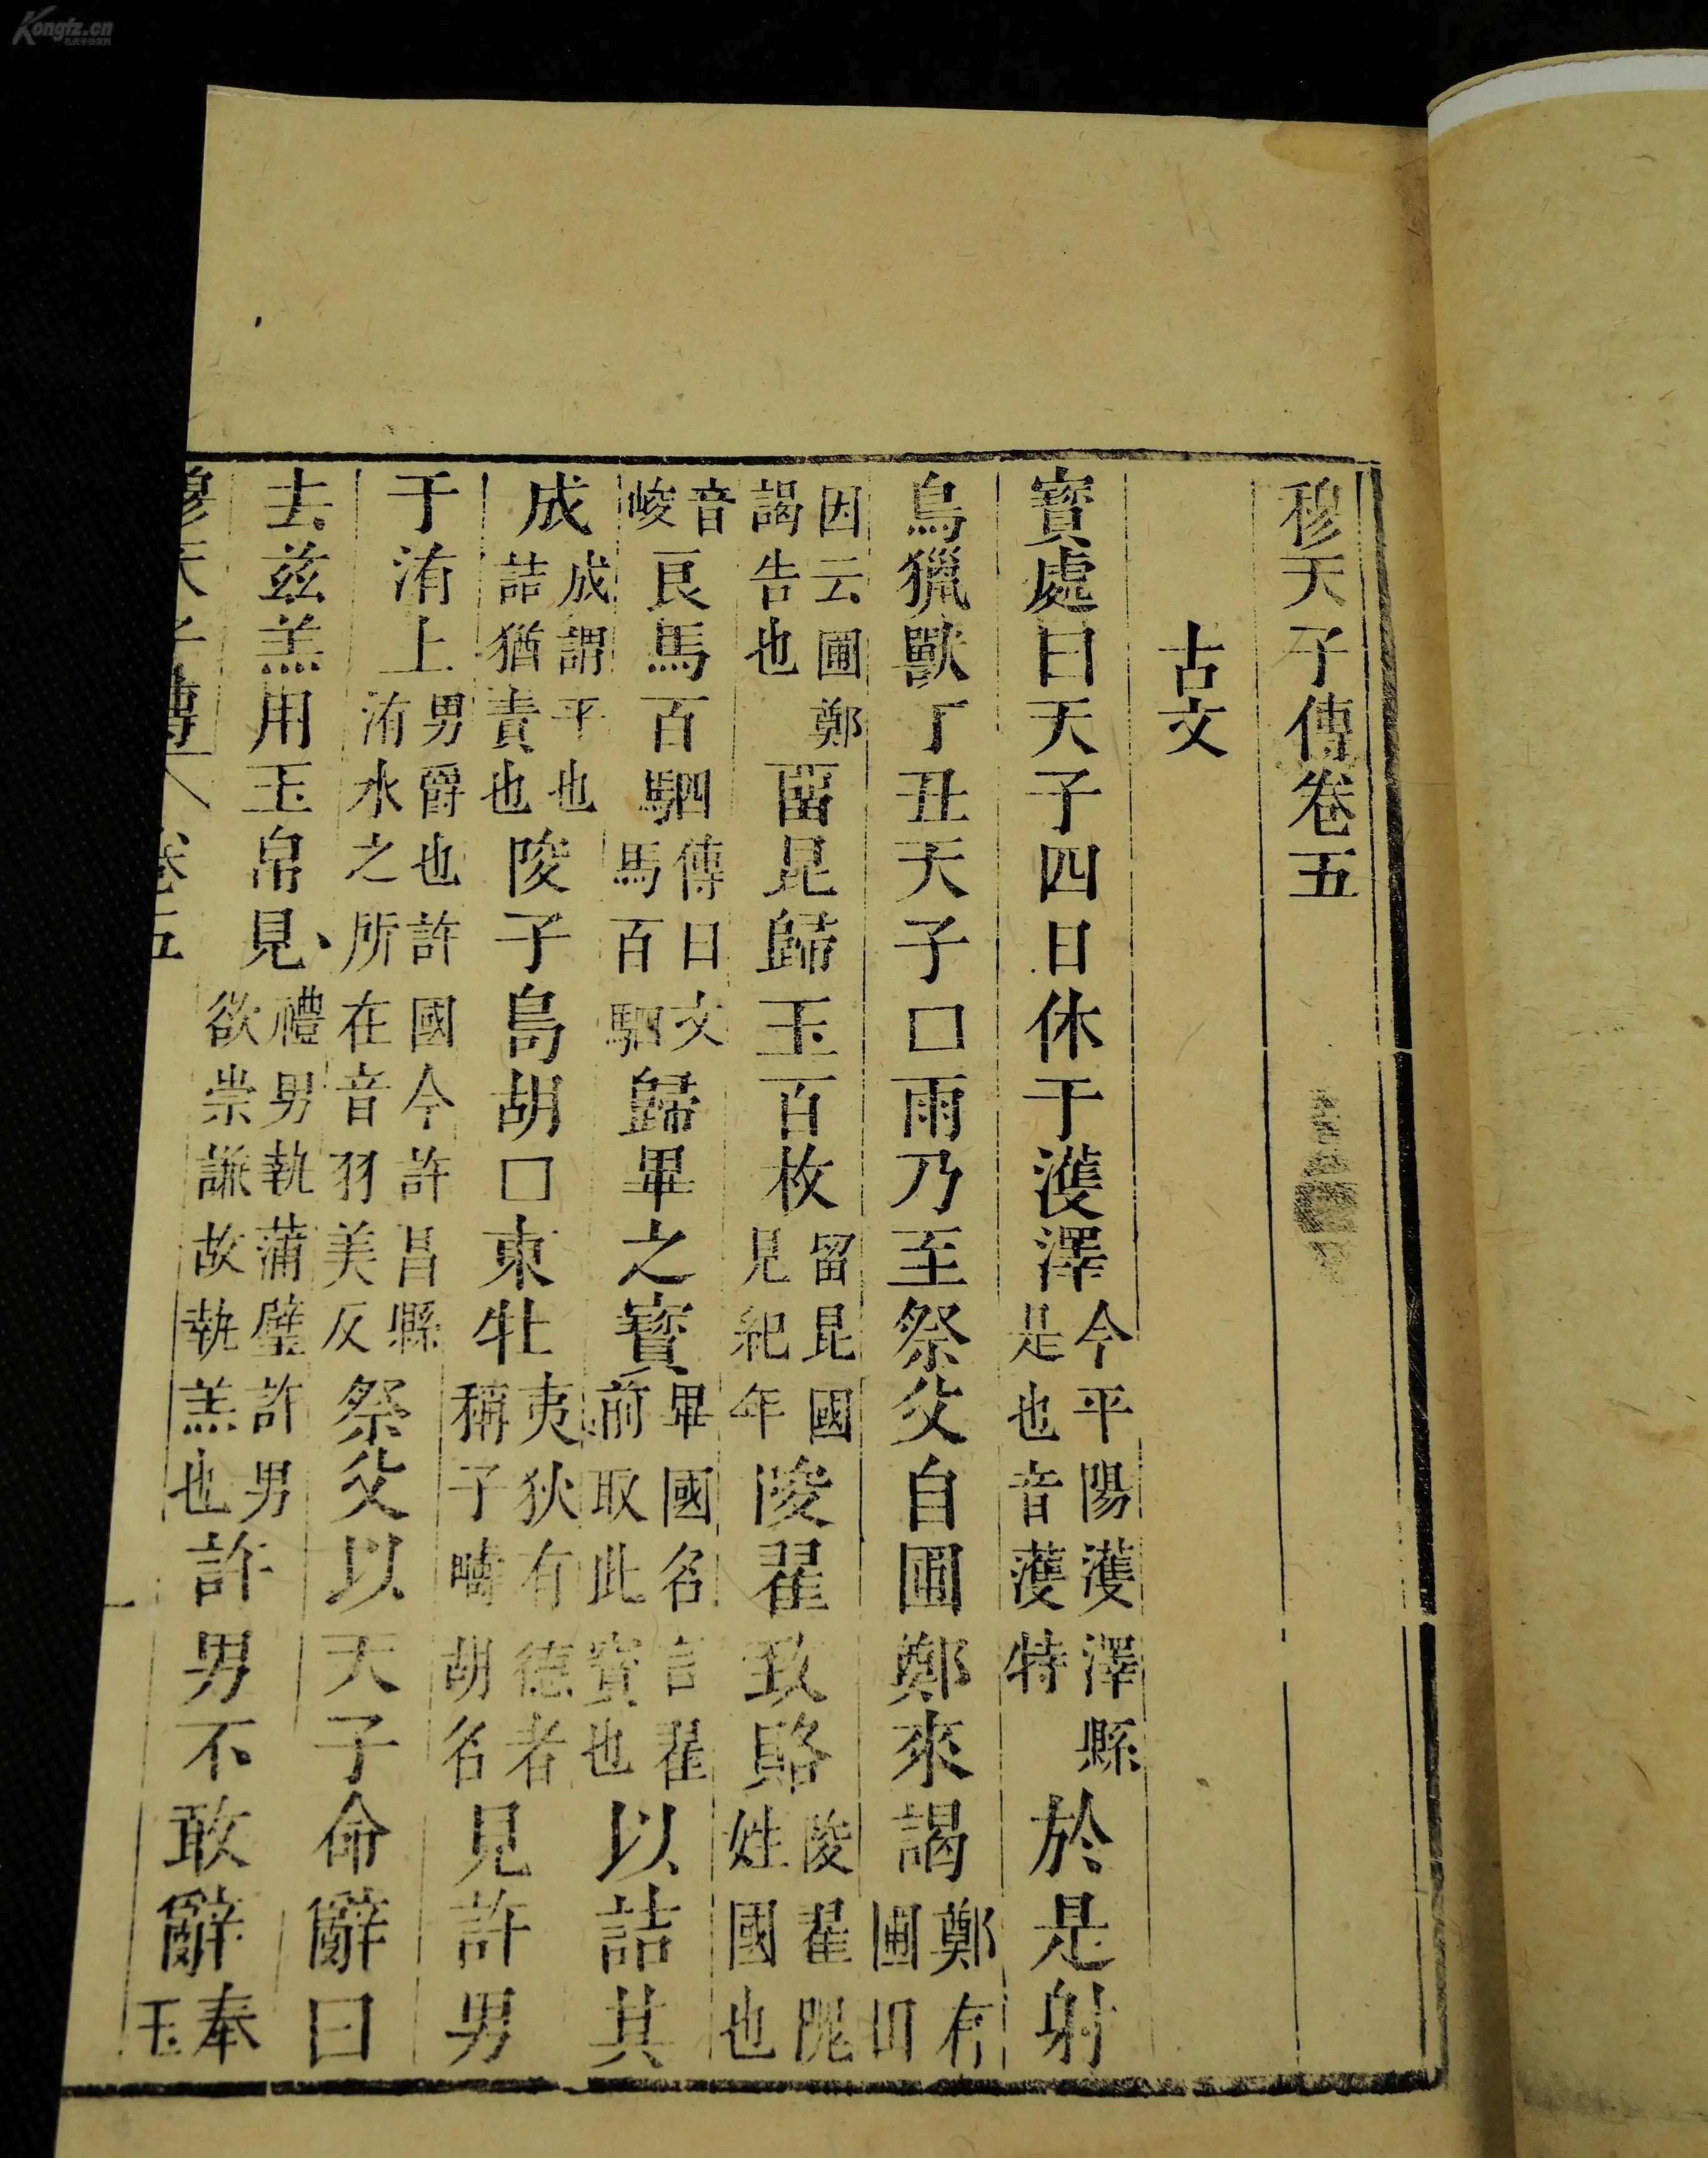 穆天子傳卷五
古文
寶處曰天子四日休于濩澤今平陽濩澤縣是也音濩特於是射
鳥獵獸丁丑天子囗雨乃至祭父自圃鄭來謁鄭有圃田
因云圃鄭謁告也㽞昆歸玉百枚留昆國見紀年陖翟致賂陖翟隗姓國也
音峻良馬百駟傳曰文馬百駟歸畢之寶畢國名言翟前取此寶也以詰其
成成謂平也詰猶責也陖子㠀胡囗東牡夷狄有德者稱子㠀胡名見許男
于洧上男爵也許國今許昌縣洧水之所在音羽美反祭父以天子命辭曰
去茲羔用玉帛見禮男執蒲璧許男欲崇謙故執羔也許男不敢辭奉玉
穆天子傳 卷五 一
Kongfz.cn